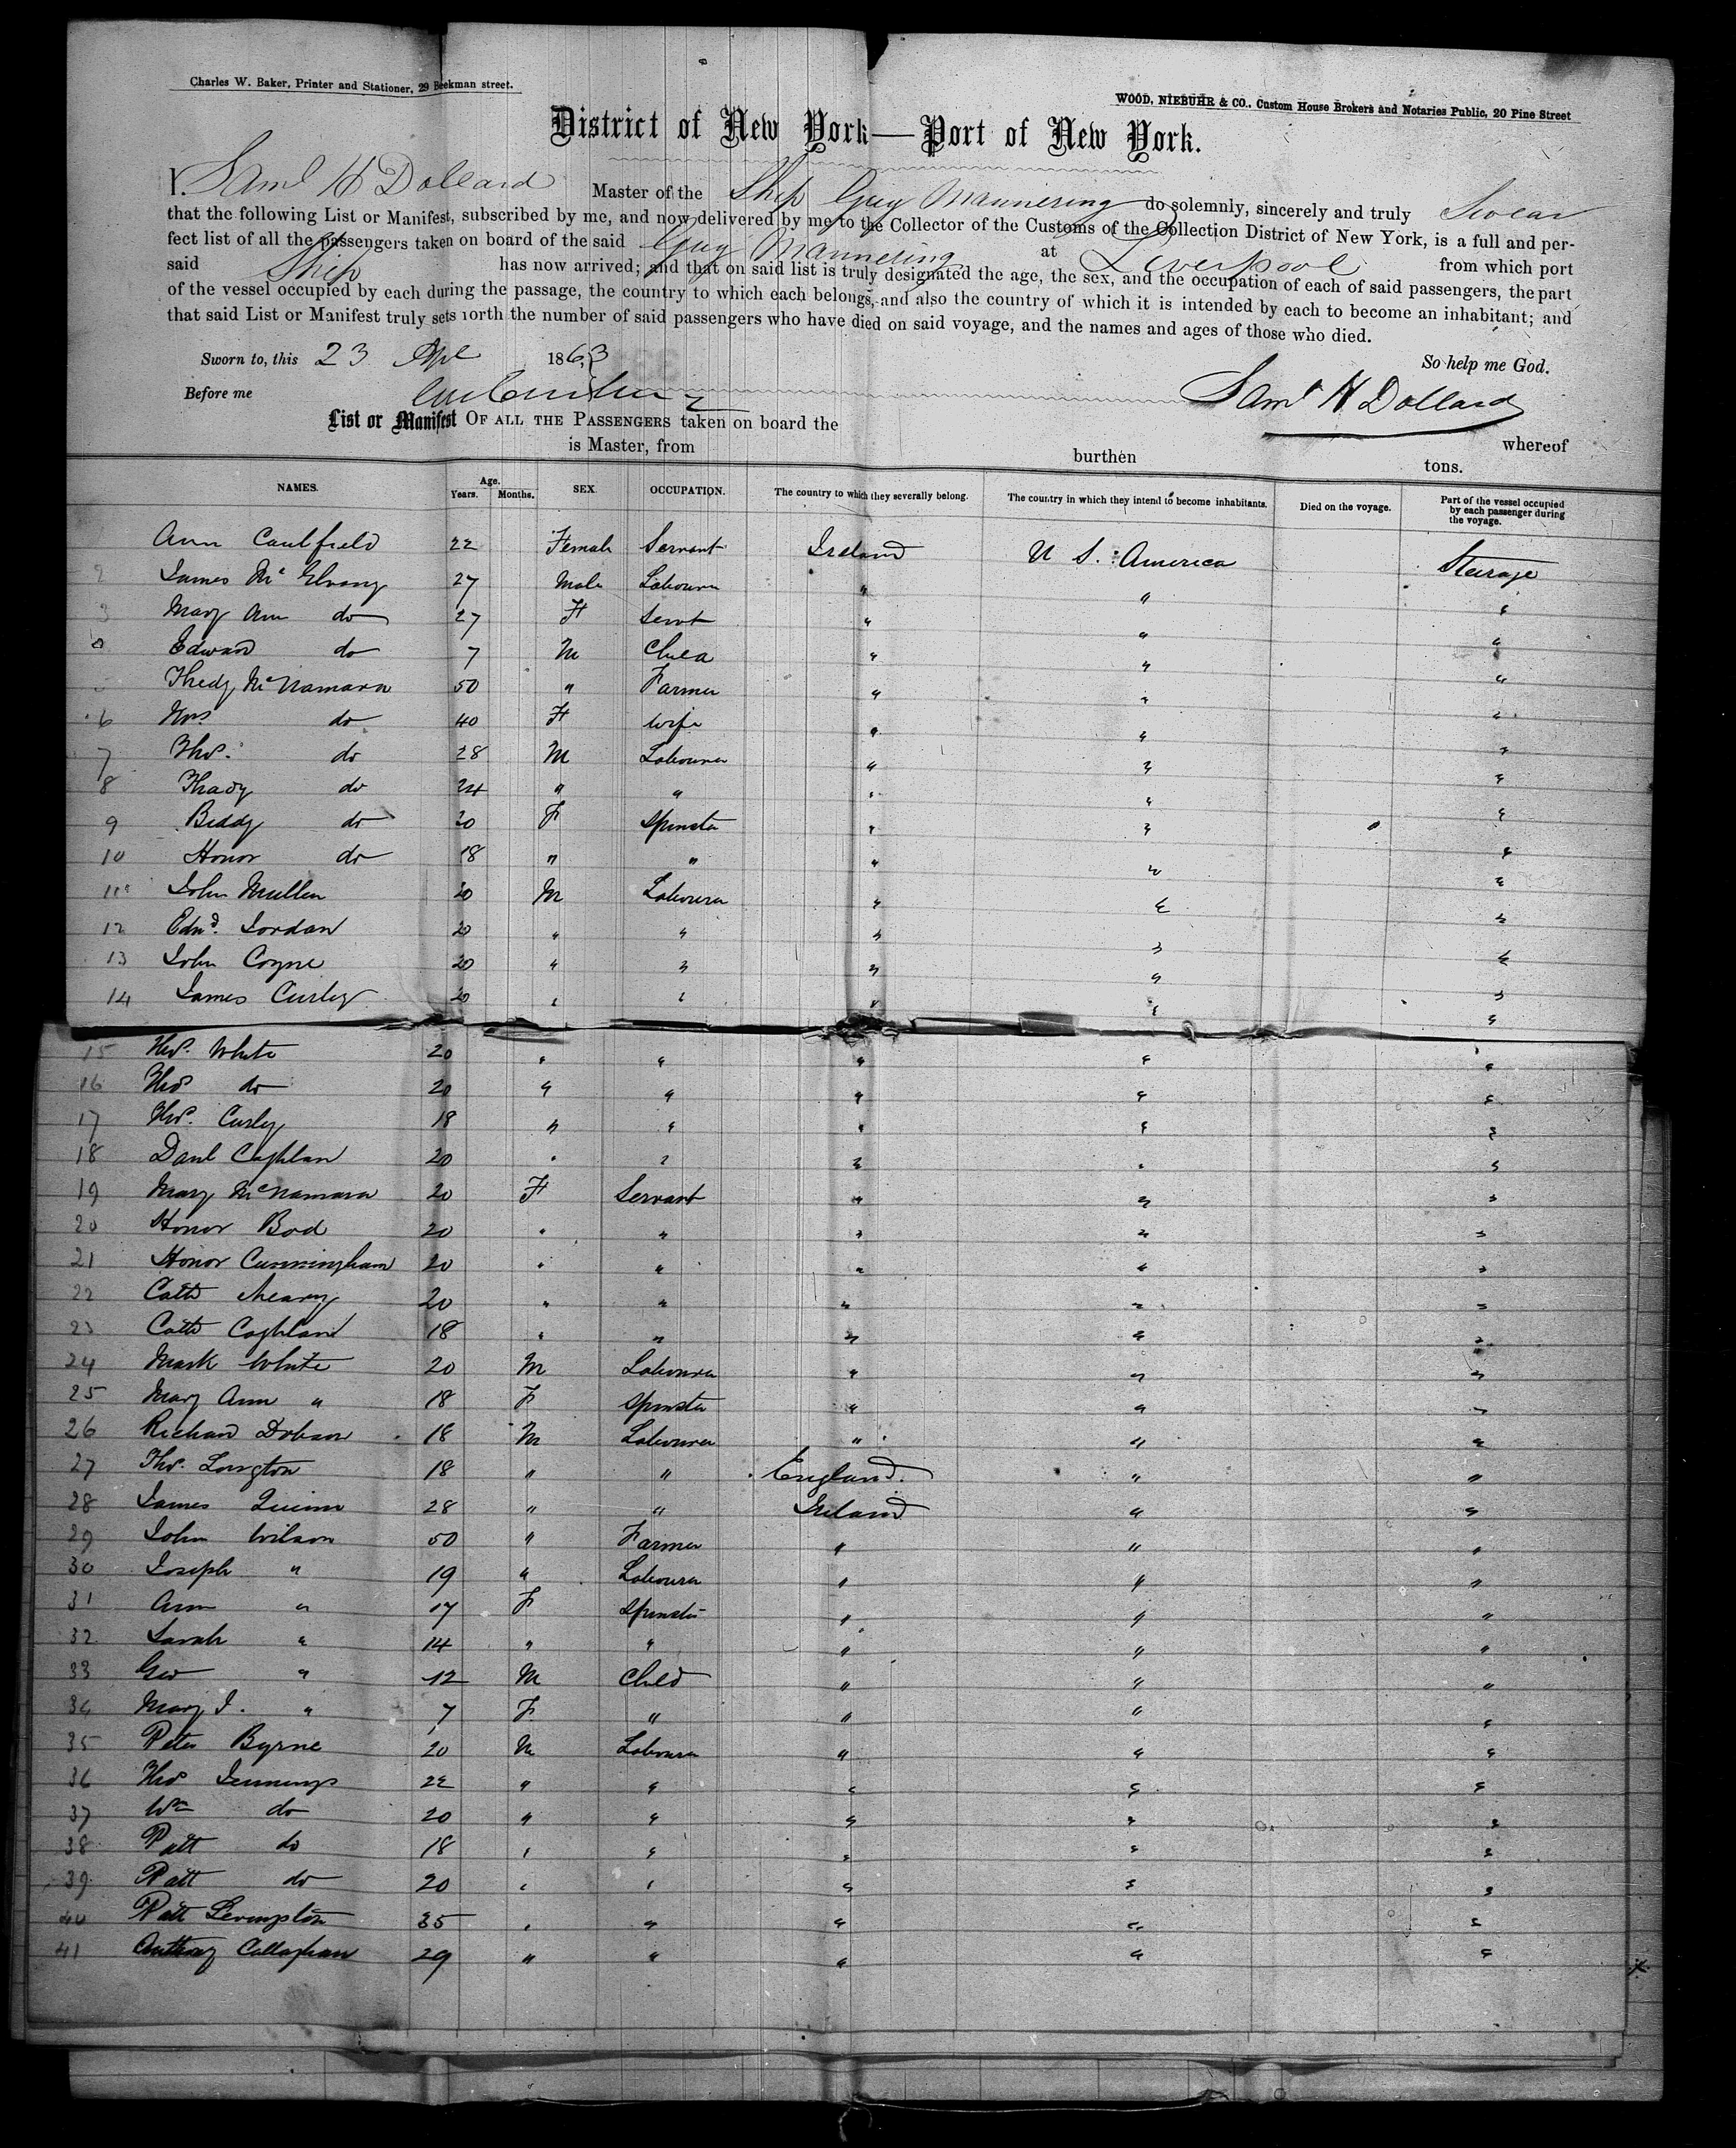 Charles W. Baker, Printer and Stationer, 29 Beekman street.
WOOD, NIEBUHR & CO., Custom House Brokers and Notaries Public, 20 Pine Street
District of New York—Port of New York.
I. Saml H Dollard Master of the Ship Guy Mannering do solemnly, sincerely and truly Swear
that the following List or Manifest, subscribed by me, and now delivered by me to the Collector of the Customs of the Collection District of New York, is a full and per-
fect list of all the passengers taken on board of the said Guy Mannering at Liverpool from which port
said Ship has now arrived; and that on said list is truly designated the age, the sex, and the occupation of each of said passengers, the part
of the vessel occupied by each during the passage, the country to which each belongs, and also the country of which it is intended by each to become an inhabitant; and
that said List or Manifest truly sets forth the number of said passengers who have died on said voyage, and the names and ages of those who died.
Sworn to, this 23 Apl 1863 So help me God.
Before me Saml H Dollard
List or Manifest OF ALL THE PASSENGERS taken on board the whereof
is Master, from burthen tons.
NAMES. Age. Years. Months. SEX. OCCUPATION. The country to which they severally belong. The country in which they intend to become inhabitants. Died on the voyage. Part of the vessel occupied by each passenger during the voyage.
Ann Caulfield 22 Female Servant Ireland U S. America Steerage
2 James McElvany 27 Male Labourer " " "
3 Mary Ann do 27 F Servt " " "
4 Edward do 7 M Child " " "
5 Thedy McNamara 50 " Farmer " " "
6 Mrs do 40 F Wife " " "
7 Thos. do 28 M Labourer " " "
8 Thady do 24 " " " " "
9 Biddy do 20 F Spinster " " "
10 Honor do 18 " " " " "
11 John Mullen 20 M Labourer " " "
12 Edwd. Jordan 20 " " " " "
13 John Coyne 20 " " " " "
14 James Curley 20 " " " " "
15 Thos. White 20 " " " " "
16 Thos do 20 " " " " "
17 Thos. Curley 18 " " " " "
18 Danl Coghlan 20 " " " " "
19 Mary McNamara 20 F Servant " " "
20 Honor Bod 20 " " " " "
21 Honor Cunningham 20 " " " " "
22 Cath 20 " " " " "
23 Cath Coghlan 18 " " " " "
24 Mark White 20 M Labourer " " "
25 Mary Ann " 18 F Spinster " " "
26 Richard Dobson 18 M Labourer " " "
27 Thos. Longton 18 " " England. " "
28 James Quinn 28 " " Ireland " "
29 John Wilson 50 " Farmer " " "
30 Joseph " 19 " Labourer " " "
31 Ann " 17 F Spinster " " "
32 Sarah " 14 " " " " "
33 Geo " 12 M Child " " "
34 Mary J. " 7 F " " " "
35 Peter Byrne 20 M Labourer " " "
36 Thos Jennings 22 " " " " "
37 Wm do 20 " " " " "
38 Patt do 18 " " " " "
39 Patt do 20 " " " " "
40 Patt Levingston 35 " " " " "
41 Anthony Callaghan 29 " " " " "